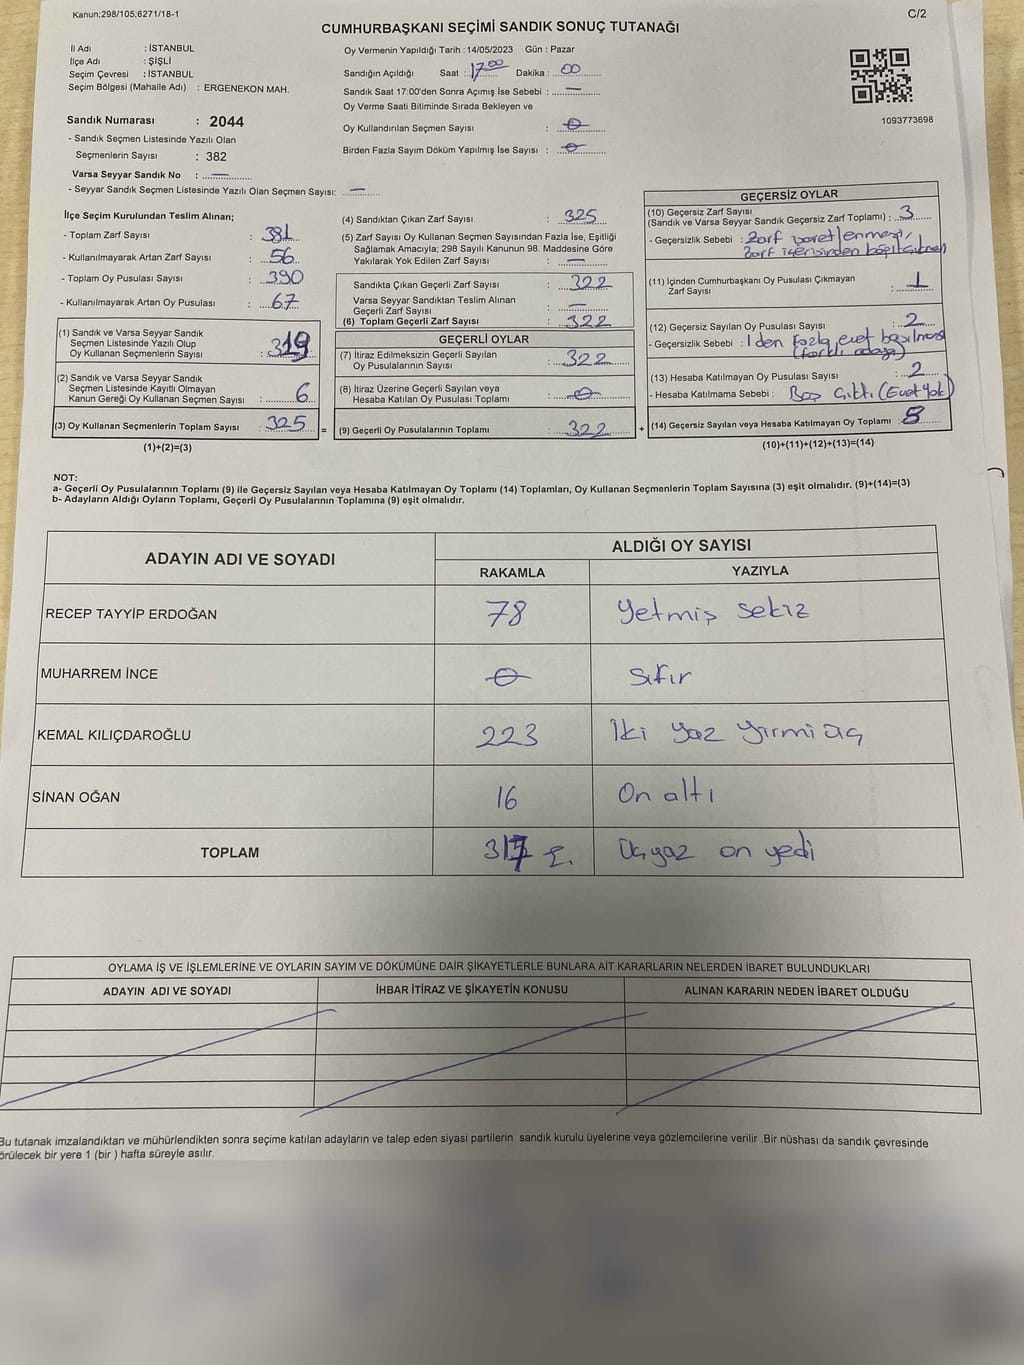 Kanun;298/105;6271/18-1
C/2
CUMHURBAŞKANI SEÇİMİ SANDIK SONUÇ TUTANAĞI
İl Adı : İSTANBUL
İlçe Adı : ŞİŞLİ
Seçim Çevresi : İSTANBUL
Seçim Bölgesi (Mahalle Adı) : ERGENEKON MAH.
Sandık Numarası : 2044
- Sandık Seçmen Listesinde Yazılı Olan
Seçmenlerin Sayısı : 382
Varsa Seyyar Sandık No : —
- Seyyar Sandık Seçmen Listesinde Yazılı Olan Seçmen Sayısı: —
Oy Vermenin Yapıldığı Tarih : 14/05/2023 Gün : Pazar
Sandığın Açıldığı Saat : 17.00 Dakika : 00
Sandık Saat 17:00'den Sonra Açımış İse Sebebi : —
Oy Verme Saati Bitiminde Sırada Bekleyen ve
Oy Kullandırılan Seçmen Sayısı : 0
Birden Fazla Sayım Döküm Yapılmış İse Sayısı : 0
1093773698
İlçe Seçim Kurulundan Teslim Alınan;
- Toplam Zarf Sayısı : 381
- Kullanılmayarak Artan Zarf Sayısı : 56
- Toplam Oy Pusulası Sayısı : 390
- Kullanılmayarak Artan Oy Pusulası : 67
(1) Sandık ve Varsa Seyyar Sandık
Seçmen Listesinde Yazılı Olup
Oy Kullanan Seçmenlerin Sayısı : 319
(2) Sandık ve Varsa Seyyar Sandık
Seçmen Listesinde Kayıtlı Olmayan
Kanun Gereği Oy Kullanan Seçmen Sayısı : 6
(3) Oy Kullanan Seçmenlerin Toplam Sayısı : 325 =
(1)+(2)=(3)
(4) Sandıktan Çıkan Zarf Sayısı : 325
(5) Zarf Sayısı Oy Kullanan Seçmen Sayısından Fazla İse, Eşitliği
Sağlamak Amacıyla; 298 Sayılı Kanunun 98. Maddesine Göre
Yakılarak Yok Edilen Zarf Sayısı : —
Sandıkta Çıkan Geçerli Zarf Sayısı : 322
Varsa Seyyar Sandıktan Teslim Alınan
Geçerli Zarf Sayısı : —
(6) Toplam Geçerli Zarf Sayısı : 322
GEÇERLİ OYLAR
(7) İtiraz Edilmeksizin Geçerli Sayılan
Oy Pusulalarının Sayısı : 322
(8) İtiraz Üzerine Geçerli Sayılan veya
Hesaba Katılan Oy Pusulası Toplamı : 0
(9) Geçerli Oy Pusulalarının Toplamı : 322 +
GEÇERSİZ OYLAR
(10) Geçersiz Zarf Sayısı
(Sandık ve Varsa Seyyar Sandık Geçersiz Zarf Toplamı) : 3
- Geçersizlik Sebebi : Zarf işaretlenmesi,
Zarf içerisinden
(11) İçinden Cumhurbaşkanı Oy Pusulası Çıkmayan
Zarf Sayısı : 1
(12) Geçersiz Sayılan Oy Pusulası Sayısı : 2
- Geçersizlik Sebebi : 1 den fazla evet basılması
(farklı adaya)
(13) Hesaba Katılmayan Oy Pusulası Sayısı : 2
- Hesaba Katılmama Sebebi : Boş Çıktı (Evet Yok)
(14) Geçersiz Sayılan veya Hesaba Katılmayan Oy Toplamı : 8
(10)+(11)+(12)+(13)=(14)
NOT:
a- Geçerli Oy Pusulalarının Toplamı (9) ile Geçersiz Sayılan veya Hesaba Katılmayan Oy Toplamı (14) Toplamları, Oy Kullanan Seçmenlerin Toplam Sayısına (3) eşit olmalıdır. (9)+(14)=(3)
b- Adayların Aldığı Oyların Toplamı, Geçerli Oy Pusulalarının Toplamına (9) eşit olmalıdır.
ADAYIN ADI VE SOYADI
ALDIĞI OY SAYISI
RAKAMLA YAZIYLA
RECEP TAYYİP ERDOĞAN 78 Yetmiş sekiz
MUHARREM İNCE 0 Sıfır
KEMAL KILIÇDAROĞLU 223 İki yüz yirmi üç
SİNAN OĞAN 16 On altı
TOPLAM 317 Üç yüz on yedi
OYLAMA İŞ VE İŞLEMLERİNE VE OYLARIN SAYIM VE DÖKÜMÜNE DAİR ŞİKAYETLERLE BUNLARA AİT KARARLARIN NELERDEN İBARET BULUNDUKLARI
ADAYIN ADI VE SOYADI İHBAR İTİRAZ VE ŞİKAYETİN KONUSU ALINAN KARARIN NEDEN İBARET OLDUĞU
Bu tutanak imzalandıktan ve mühürlendikten sonra seçime katılan adayların ve talep eden siyasi partilerin sandık kurulu üyelerine veya gözlemcilerine verilir .Bir nüshası da sandık çevresinde
örülecek bir yere 1 (bir ) hafta süreyle asılır.